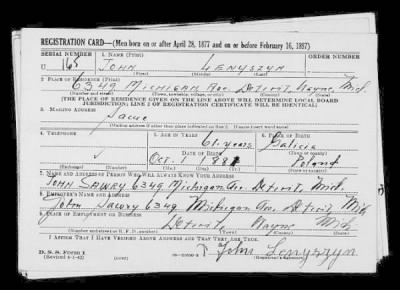 REGISTRATION CARD—(Men born on or after April 28, 1877 and on or before February 16, 1897)
SERIAL NUMBER 1. NAME (Print)
U 165 JOHN LENYSZYN
(First) (Middle) (Last)
2. PLACE OF RESIDENCE (Print)
6349 MICHIGAN Ave. Detroit, Wayne, Mich.
(Number and street) (Town, township, village, or city) (County) (State)
[THE PLACE OF RESIDENCE GIVEN ON THE LINE ABOVE WILL DETERMINE LOCAL BOARD
JURISDICTION; LINE 2 OF REGISTRATION CERTIFICATE WILL BE IDENTICAL]
3. MAILING ADDRESS
Same
[Mailing address if other than place indicated on line 2. If same insert word same]
4. TELEPHONE 5. AGE IN YEARS 6. PLACE OF BIRTH
61-years Galicia
DATE OF BIRTH (Town or county)
Oct. 1 1881 Poland
(Exchange) (Number) (Mo.) (Day) (Yr.) (State or country)
7. NAME AND ADDRESS OF PERSON WHO WILL ALWAYS KNOW YOUR ADDRESS
JOHN SAWRY 6349 Michigan Ave. Detroit, Mich.
8. EMPLOYER'S NAME AND ADDRESS
John Sawry 6349 Michigan Ave. Detroit, Mich
9. PLACE OF EMPLOYMENT OR BUSINESS
Detroit Wayne Mich
(Number and street or R. F. D. number) (Town) (County) (State)
I AFFIRM THAT I HAVE VERIFIED ABOVE ANSWERS AND THAT THEY ARE TRUE.
D. S. S. Form 1
(Revised 4-1-42) (over) John Lenyszyn
(Registrant's signature)